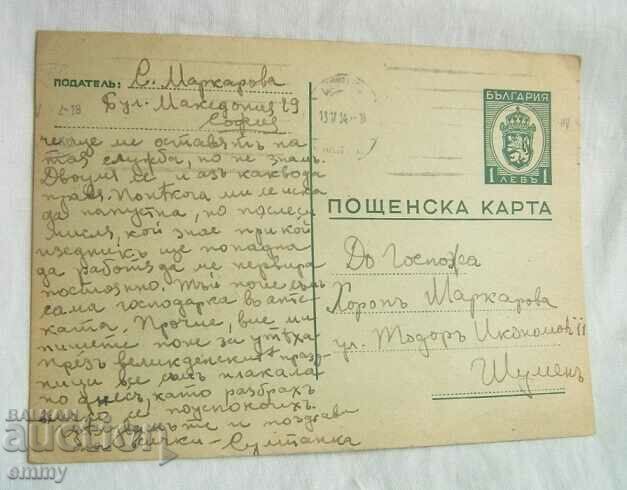 ПОДАТЕЛЬ: С. Маркарова
Бул. Македония 29
София
че ще ме оставятъ на
тая служба, но не знамъ.
Двоумя се и азъ какво да
правя. Понѣкога ми се иска
да напустна, но после си
мисля, кой знае при кой
изедникъ ще попадна
да работя да ме нервира
постоянно. Тъй поне съмь
сама господарка въ апте-
ката. Прочие, вие ми
пишете поне за утѣха
презъ великденскитѣ праз-
ници все съмъ плакала
но днесъ, като разбрахъ
всичко се поуспокоихъ.
и поздрави
всички - Султанка
БЪЛГАРИЯ
1 ЛЕВЪ 1
ПОЩЕНСКА КАРТА
До Госпожа
Хоропъ Маркарова
ул. Тодоръ Икономовъ 11
Шуменъ
БАЛКАН
auction
emmy